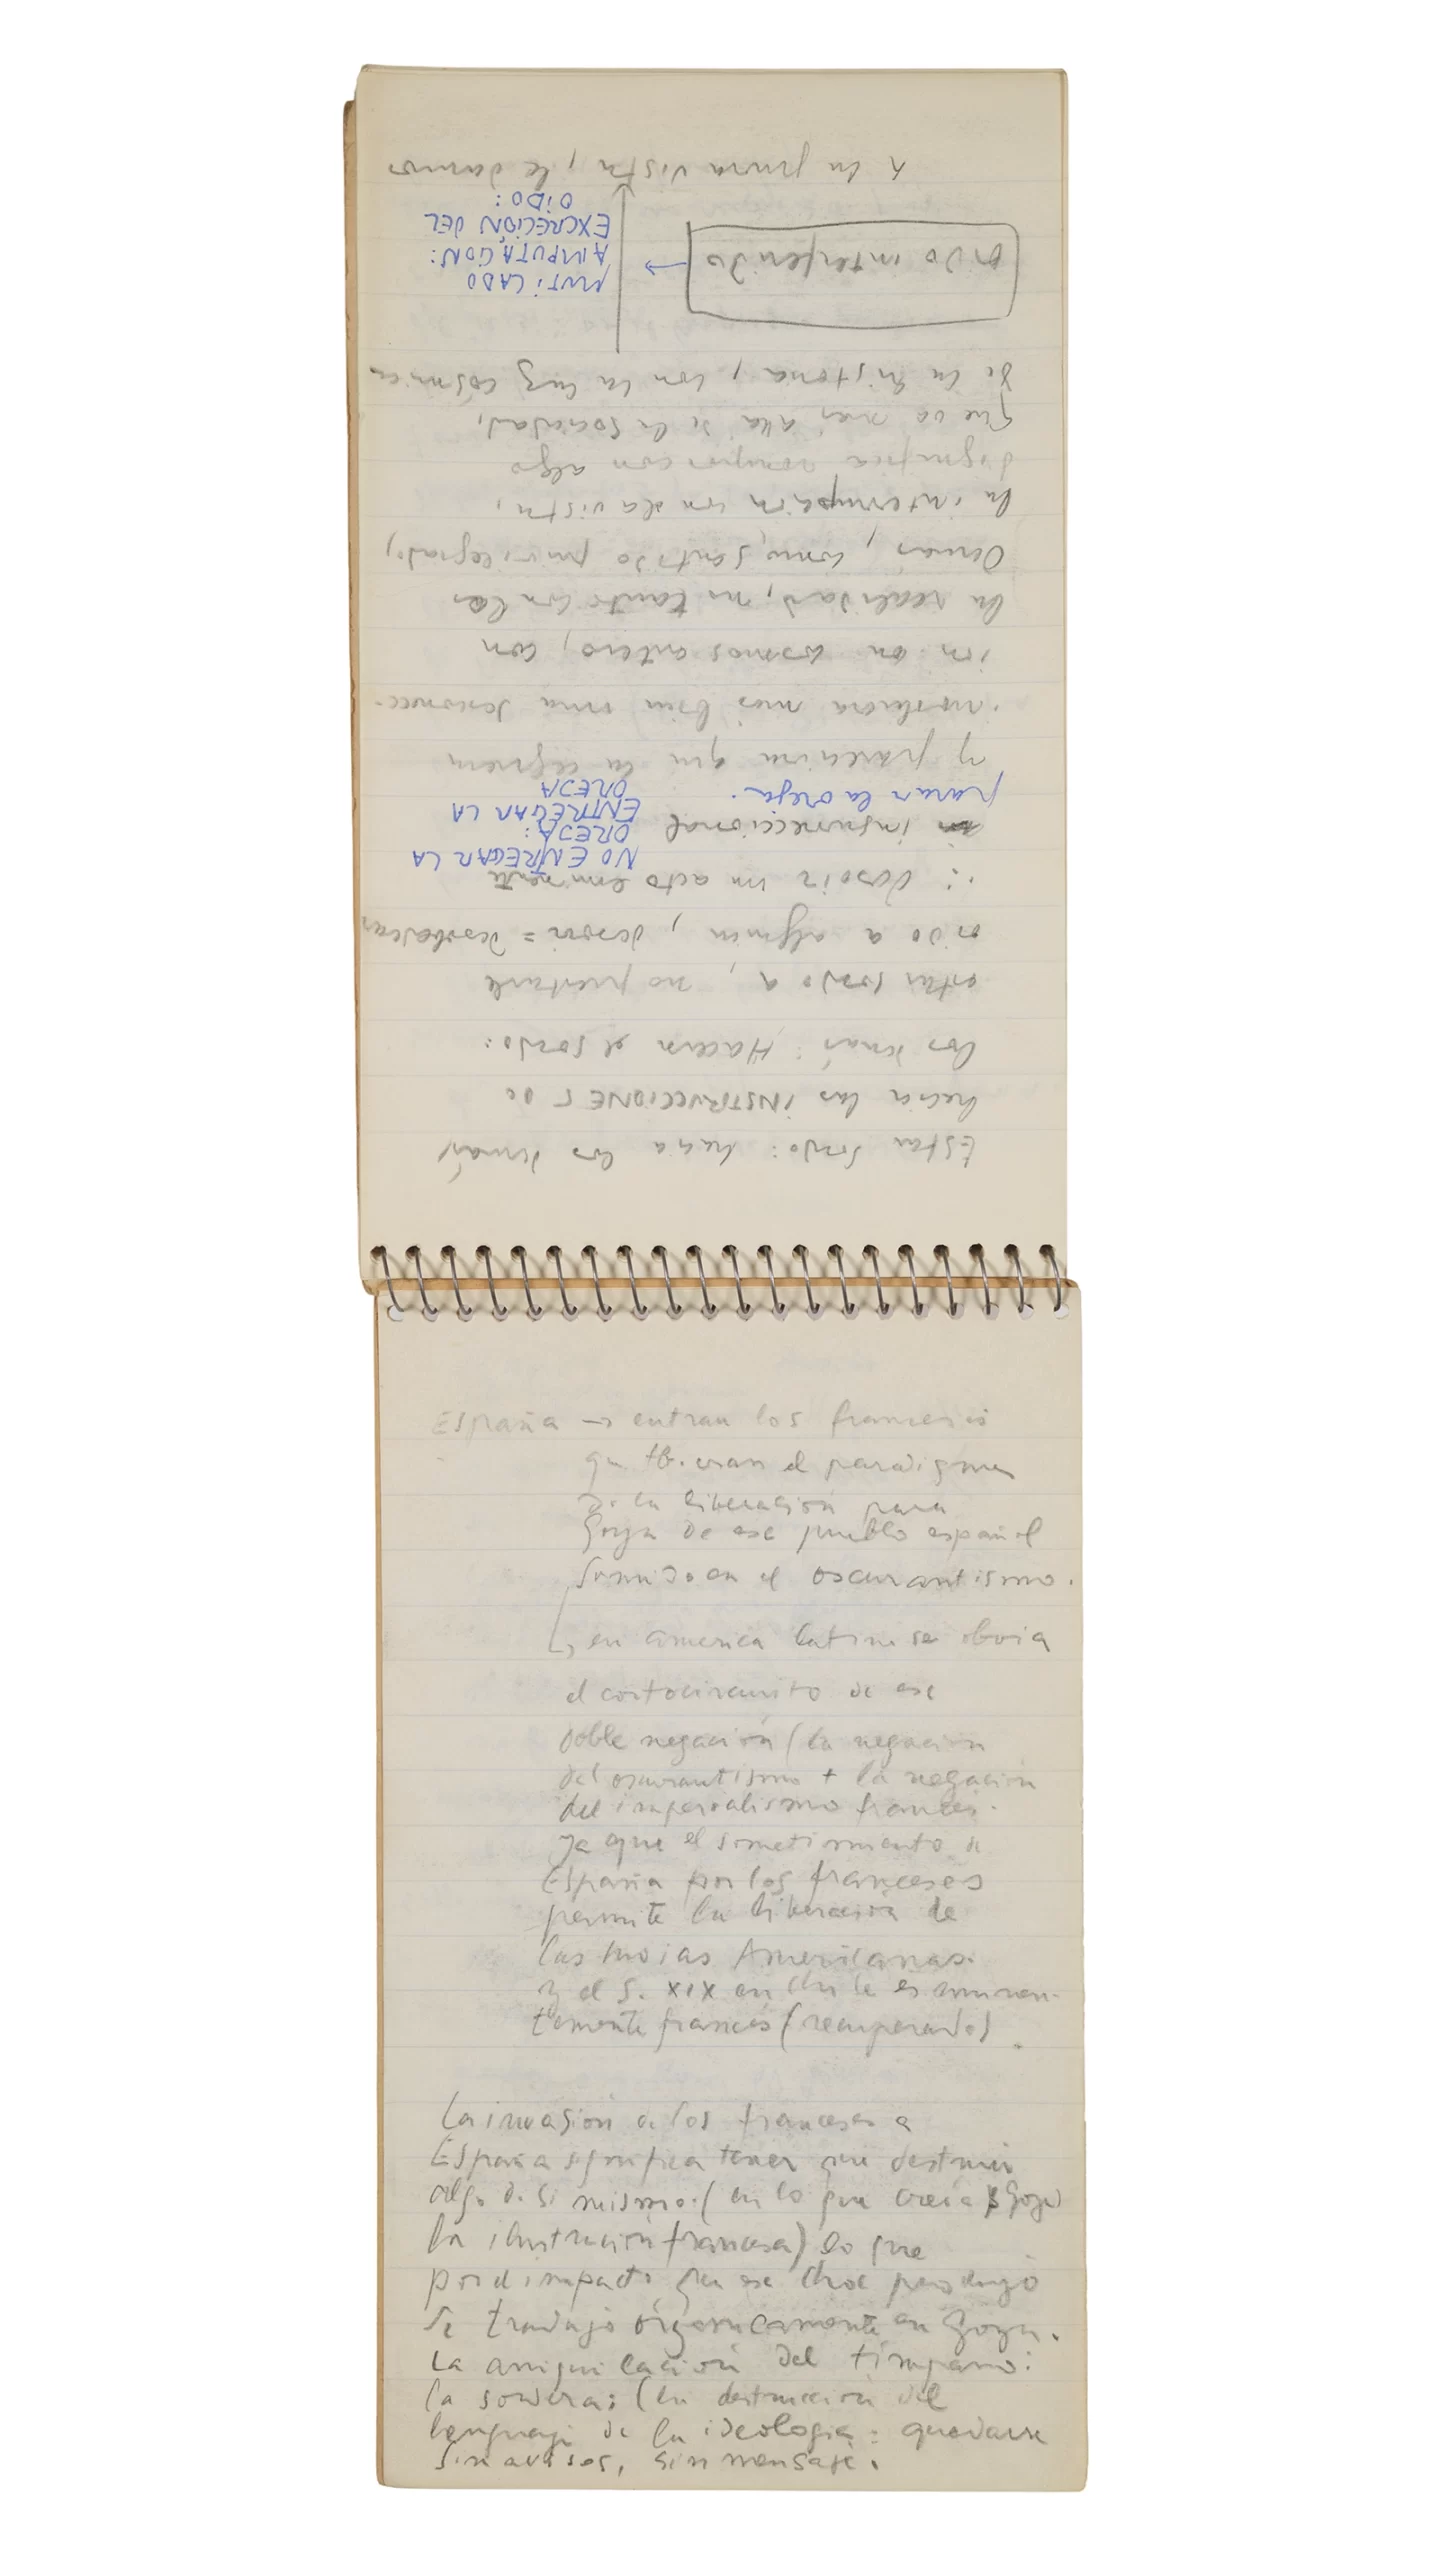 Estar sordo: hacia los demás
hacia las INSTRUCCIONES de
los demás: Hacerse el sordo:
estar sordo a, no prestarle
oido a alguien, desoir = desobedecer
∴ Desoir un acto eminente
NO ENTREGAR LA
insurreccional
OREJA:
ENTREGAR LA
OREJA
parar la oreja.
y pareciera que la ceguera
involucra más bien una desconec-
ión en cosmos entero, con
la realidad, no tanto con los
demás, como sentido privilegiado,
la interrupción con la vista,
significa romper con algo
que va más alla de la sociedad,
de la historia, con la luz cósmica
oido interferido →
MUTILADO
AMPUTACIÓN:
EXCRECIÓN DEL
OIDO:
A la pura vista, le damos
España → entran los franceses
que tb. eran el paradigma
de la liberación para
Goya de ese pueblo español
sumido en el oscurantismo.
↳ en america latina se obvia
el cortocircuito de ese
doble negación (la negación
del oscurantismo + la negación
del imperialismo francés.
ya que el sometimiento de
España por los franceses
permite la liberación de
las Indias Americanas.
y el s. XIX en Chile es eminen-
temente francés (recuperado)
La invasión de los franceses a
España significa tener que destruir
algo de si mismo. (en lo que creía Goya)
la ilustración francesa) lo que
por el impacto que ese choc produjo
se tradujo orgánicamente en Goya.
La aniquilación del tímpano:
la sordera: (la destrucción del
lenguaje de la ideologia: quedarse
sin avisos, sin mensaje.